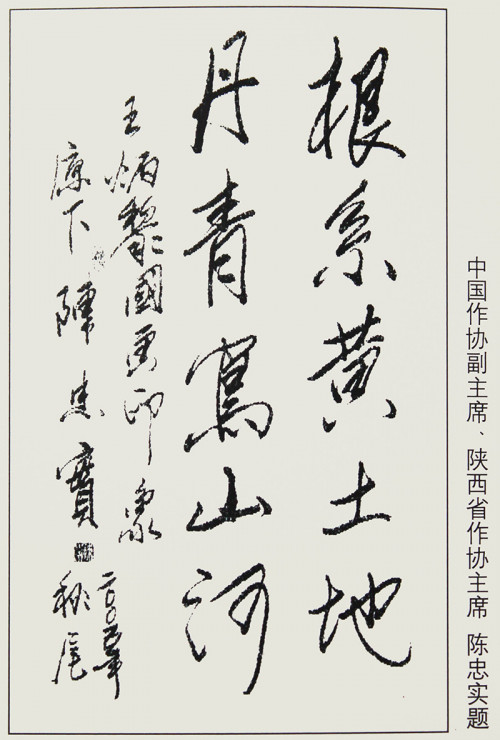 根系黄土地
丹青寫山河
王炳黎國画印象
原下 陳忠實
二〇〇五年
秋尾
中国作协副主席、陕西省作协主席 陈忠实题